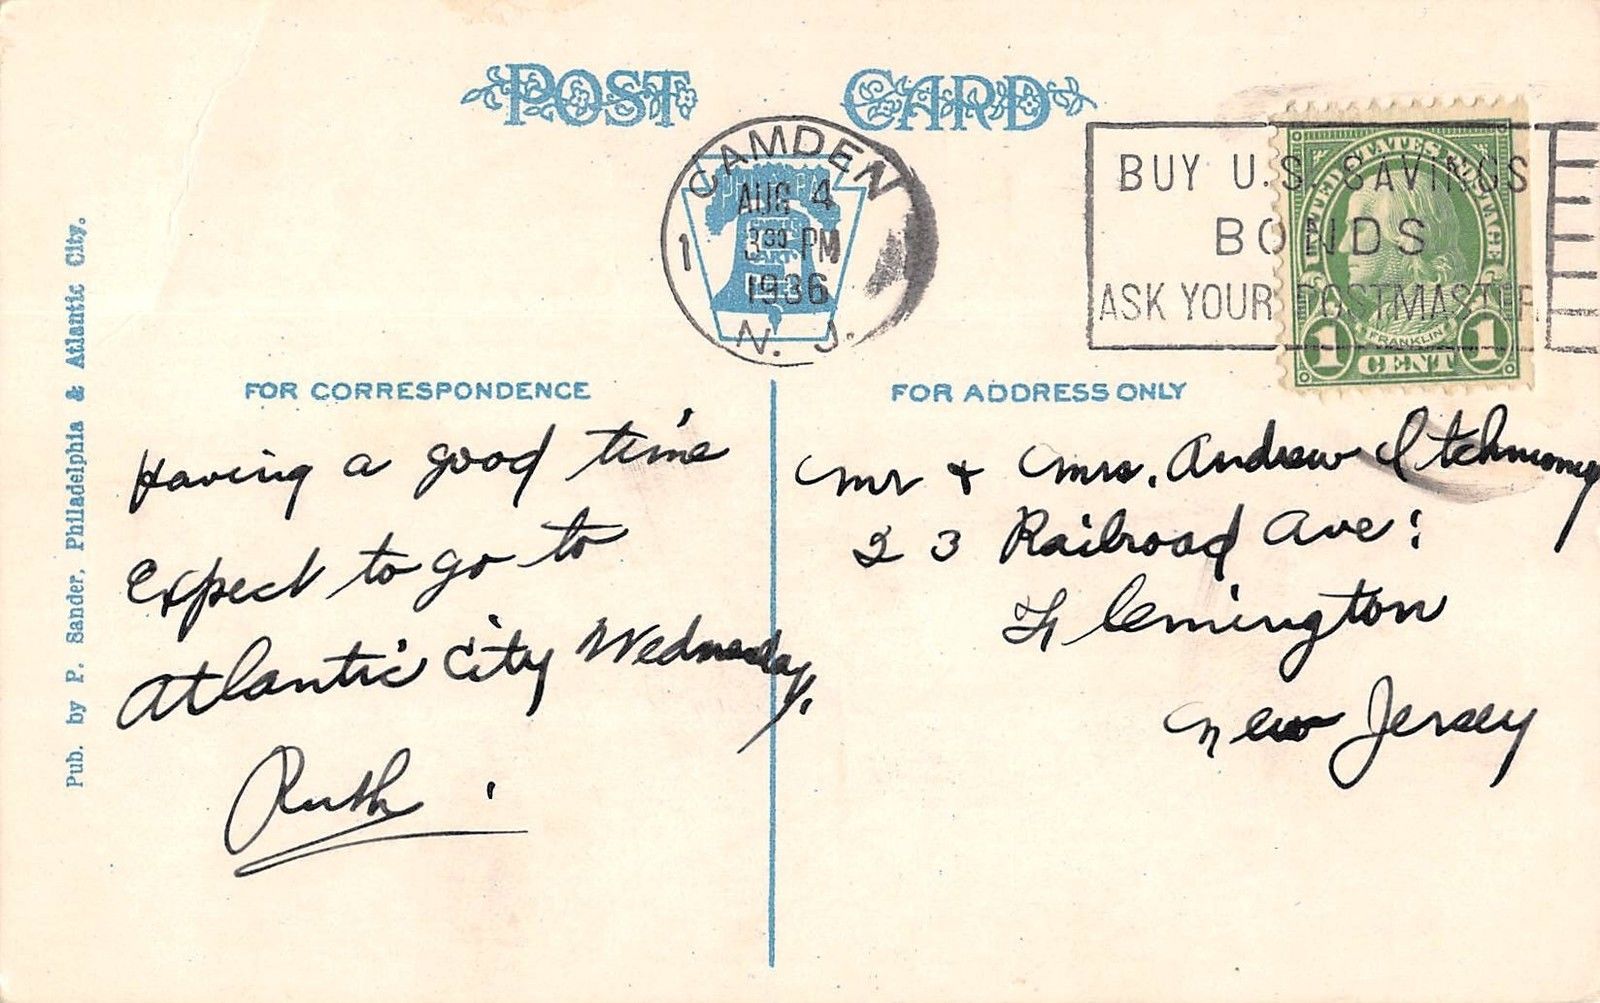 POST CARD
CAMDEN
AUG 4
3 30 PM
1936
N. J.
1
BUY U.S. SAVINGS
BONDS
ASK YOUR POSTMASTER
UNITED STATES POSTAGE
FRANKLIN
1 CENT 1
FOR CORRESPONDENCE
Having a good time
Expect to go to
Atlantic City Wednesday.
Ruth.
FOR ADDRESS ONLY
Mr + Mrs. Andrew
23 Railroad Ave:
Flemington
New Jersey
Pub. by P. Sander, Philadelphia & Atlantic City.